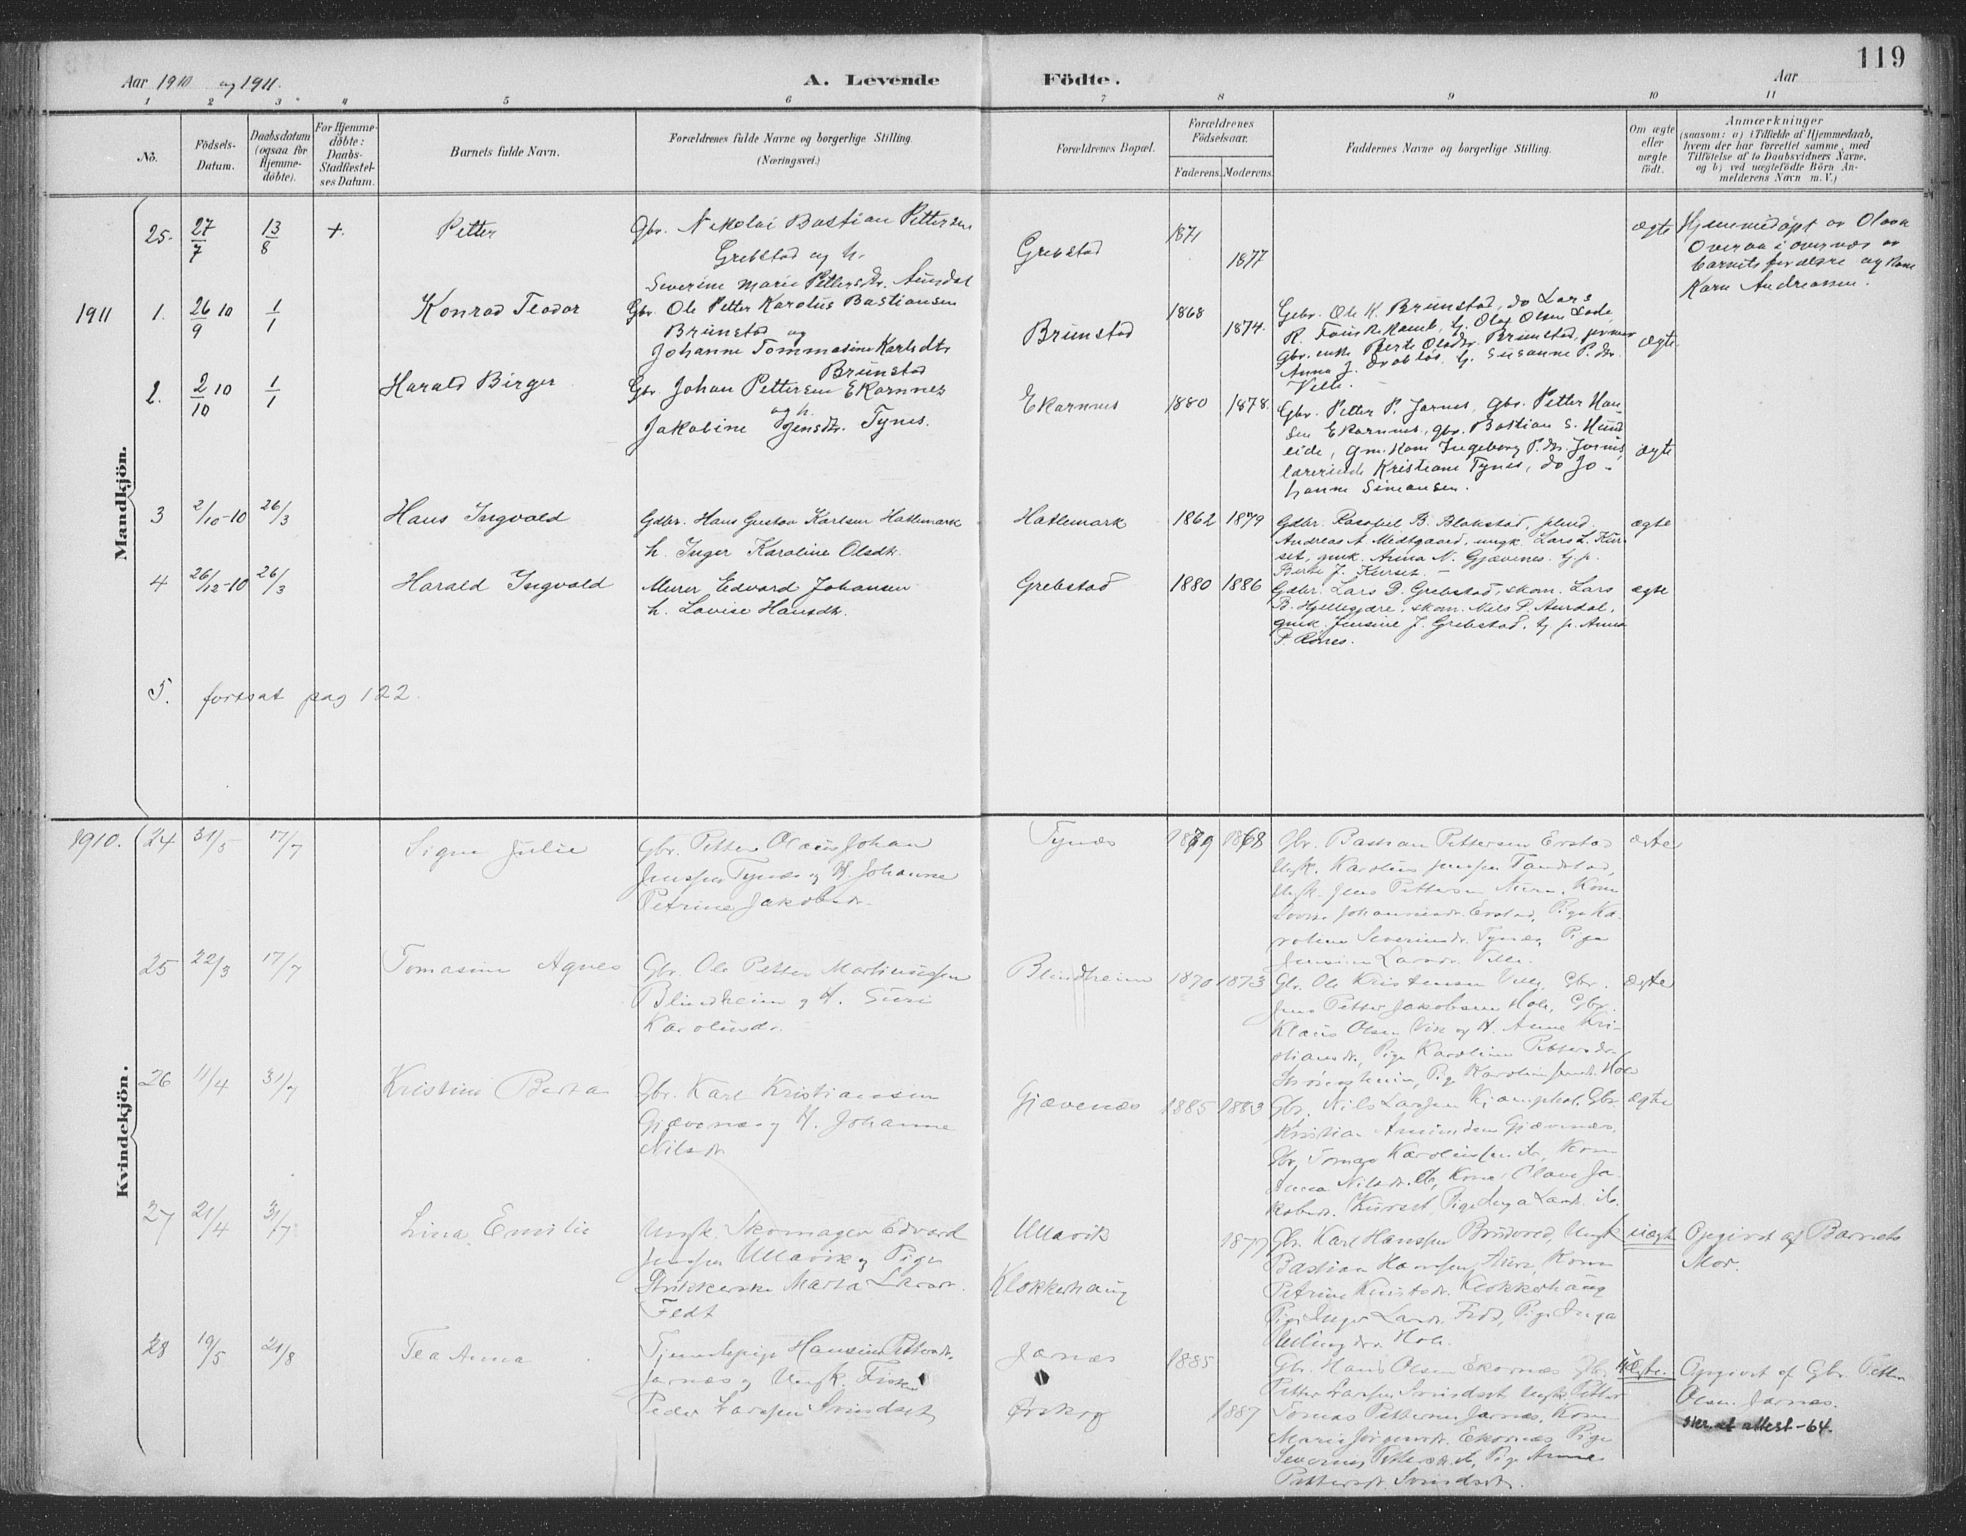 119
Aar 1910 og 1911.
A. Levende Födte.
Aar
1 2 3 4 5 6 7 8 9 10 11
No.
Födsels-Datum.
Daabsdatum (ogsaa for Hjemme-döbte).
For Hjemme-döbte: Daabs-Stadfæstel-ses Datum.
Barnets fulde Navn.
Forældrenes fulde Navne og borgerlige Stilling.
(Næringsvei.)
Forældrenes Bopæl.
Forældrenes Födselsaar.
Faderens. Moderens.
Faddernes Navne og borgerlige Stilling.
Om ægte eller uægte födt.
Anmærkninger
(saasom: a) i Tilfælde af Hjemmedaab,
hvem der har forrettet samme, med
Tilföielse af to Daabsvidners Navne,
og b) ved uægtefödte Börn An-
melderens Navn m. V.)
Mandkjön.
25. 27/7 13/8 +. Petter
Gbr. Nikolai Bastian Pettersen
Grebstad og h.
Severine Marie Pettersdtr. Aursdal
Grebstad 1871 1877 ægte
Hjemmedöpt av Olava
Overaa i overvær av
barnets forældre og Kone
Karn Andreassen.
1911 1. 26/9 10 1/1 Konrad Teodor
Gbr. Ole Petter Karolus Bastiansen
Brunstad og
Johanne Tommasine Karlsdtr
Brunstad
Brunstad 1868 1874. ægte
Gbr. Ole K. Brunstad, do Lars
R. Fauskekamb, Olav Olsen
gbr. enke Berte Olsdtr. Brunstad,
Anna J. Drabløs, Susanne P. dr.
Velle.
2. 2/10 10 1/1 Harald Birger
Gbr Johan Pettersen Ekornnes
og h.
Jakobine Jensdtr. Tynes.
Ekornnes 1880 1878. ægte
Gbr. Petter P. Jarnes, Gbr. Petter Han-
sen Ekornnes, gbr. Bastian S. Hund-
eide, gm. Kone Ingeborg P. dr. Jarnes,
lærerinde Kristiane Tynes, do Jo-
hanne Simonsen.
3 2/10-10 26/3 Hans Ingvald
Gdbr. Hans Gustav Karlsen Hatlemark
h. Inger Karoline Olsdtr.
Hatlemark 1862 1879 ægte
Gdbr. Rasmus B. Blakstad,
Andreas A Medtgaard, ungk. Lars L. Kur-
set, gmk. Anna N. Gjævenes.
Berte J. Kurset.
4 26/12-10 26/3 Harald Ingvald
Murer Edvard Johansen
h. Lovise Hansdtr.
Grebstad 1880 1886 ægte
Gdbr. Lars D. Grebstad, skom. Lars
B. Hjellegjære, skom. Nils P. Aursdal,
gmk. Jensine J. Grebstad, Anna
P. Rønes.
5. fortsat pag 122.
Kvindekjön.
1910. 24 31/5 17/7 Signe Julie
Gbr. Petter Olaus Johan
Jenssen Tynes og H. Johanne
Petrine Jakobsdr.
Tynes 1879 1868 ægte
Gbr. Bastian Pettersen Erstad
Ungk. Karolus Jenssen Tandstad,
Ungk. Jens Pettersen Aure, Kone
Lovise Johannesdr. Erstad, Pige Ka-
roline Severinsdr. Tynes, Pige
Jensine Larsdr. Velle.
25 22/3 17/7 Tomasine Agnes
Gbr. Ole Petter Martinussen
Blindheim og H. Guri
Karolusdr.
Blindheim 1870 1873 ægte
Gbr. Ole Kristensen Velle, Gbr.
Jens Petter Jakobsen Hole, Gbr.
Klaus Olsen Vik og H. Anne Kri-
stiansdr., Pige Karoline Pettersdr.
Strømsheim, Pige Karoline Jensdr. Hole
26 11/4 31/7 Kristine Berta
Gbr. Karl Kristiansen
Gjævenes og H. Johanne
Nilsdr
Gjævenes 1885 1883 ægte
Gbr. Nils Larssen Gbr
Kristian Amundsen Gjævenes,
Gbr. Tomas Karolussen ib., Kone
Anna Nilsdr. ib, Kone Olava Ja-
kobsdr. Kurset, Pige Inga Larsdr. ib.
27 21/4 31/7 Lina Emilie
Ungk. Skomager Edvard
Jenssen Ullavik og Pige
Strikkerske Marta Larsdr.
Fedt
Ullavik
Klokkerhaug
1877 uægte
Gbr. Karl Hanssen Brudevold, Ungk
Bastian Hanssen Aure, Kone
Petrine Knutsdr. Klokkerhaug
Pige Inger Larsdr. Fedt, Pige Inga
Hole.
Opgivet af Barnets
Mor.
28 19/5 21/8 Tea Anna
Tjenestepige Hansine Pettersdr.
Jarnes og Ungk. Fisker
Peder Larssen Svindset
Jarnes 1885
Ørskog 1887
Uægte.
Gbr. Hans Olsen Ekornes Gbr.
Petter Larssen Svindset Ungk. Petter
Tomas Pettersen Jarnes, Kone
Marie Jørgensdr. Ekornes Pige
Severine Pettersdr. ib, Pige Anne
Pettersdr. Svindset.
Opgivet af Gbr. Petter
Olsen Jarnes.
skr. ut attest -64.